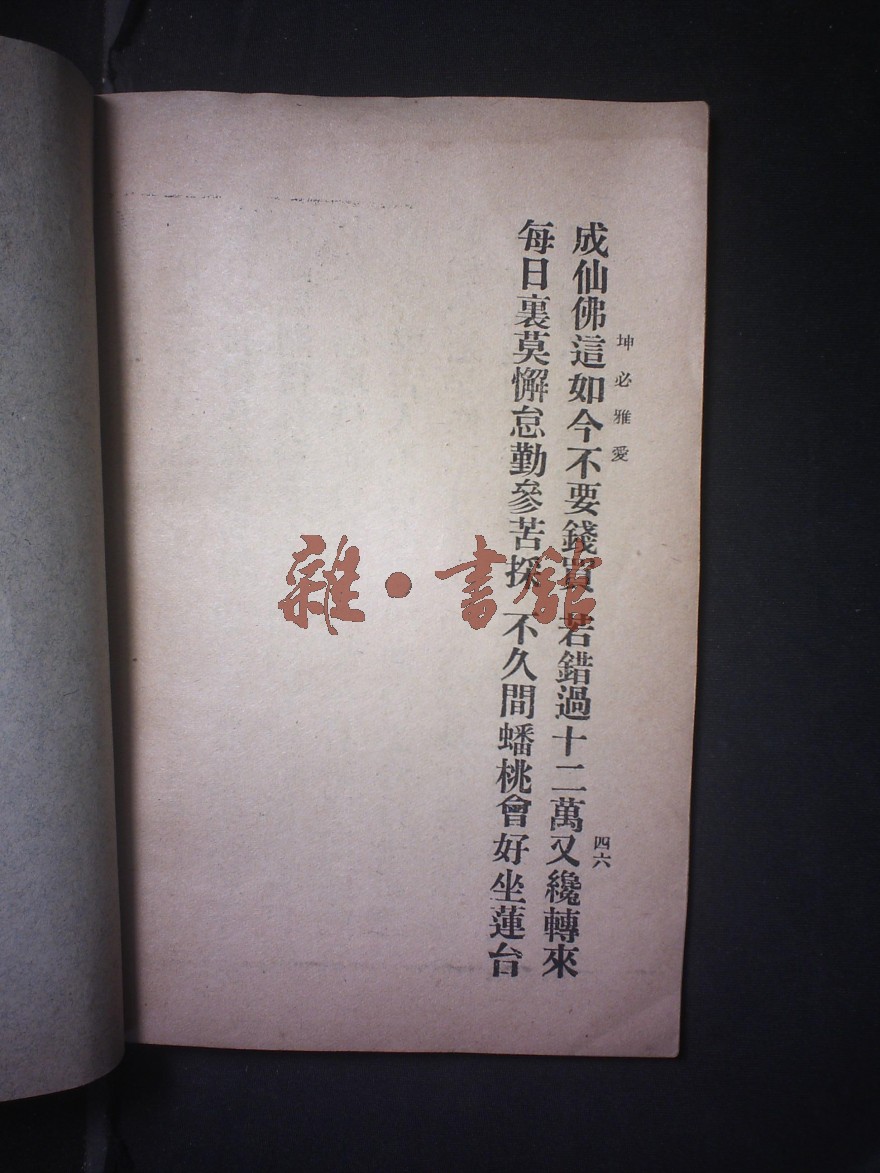 坤必雅愛
四六
成仙佛這如今不要錢買 若錯過十二萬又纔轉來
每日裏莫懈怠勤參苦採 不久間蟠桃會好坐蓮台
雜·書館